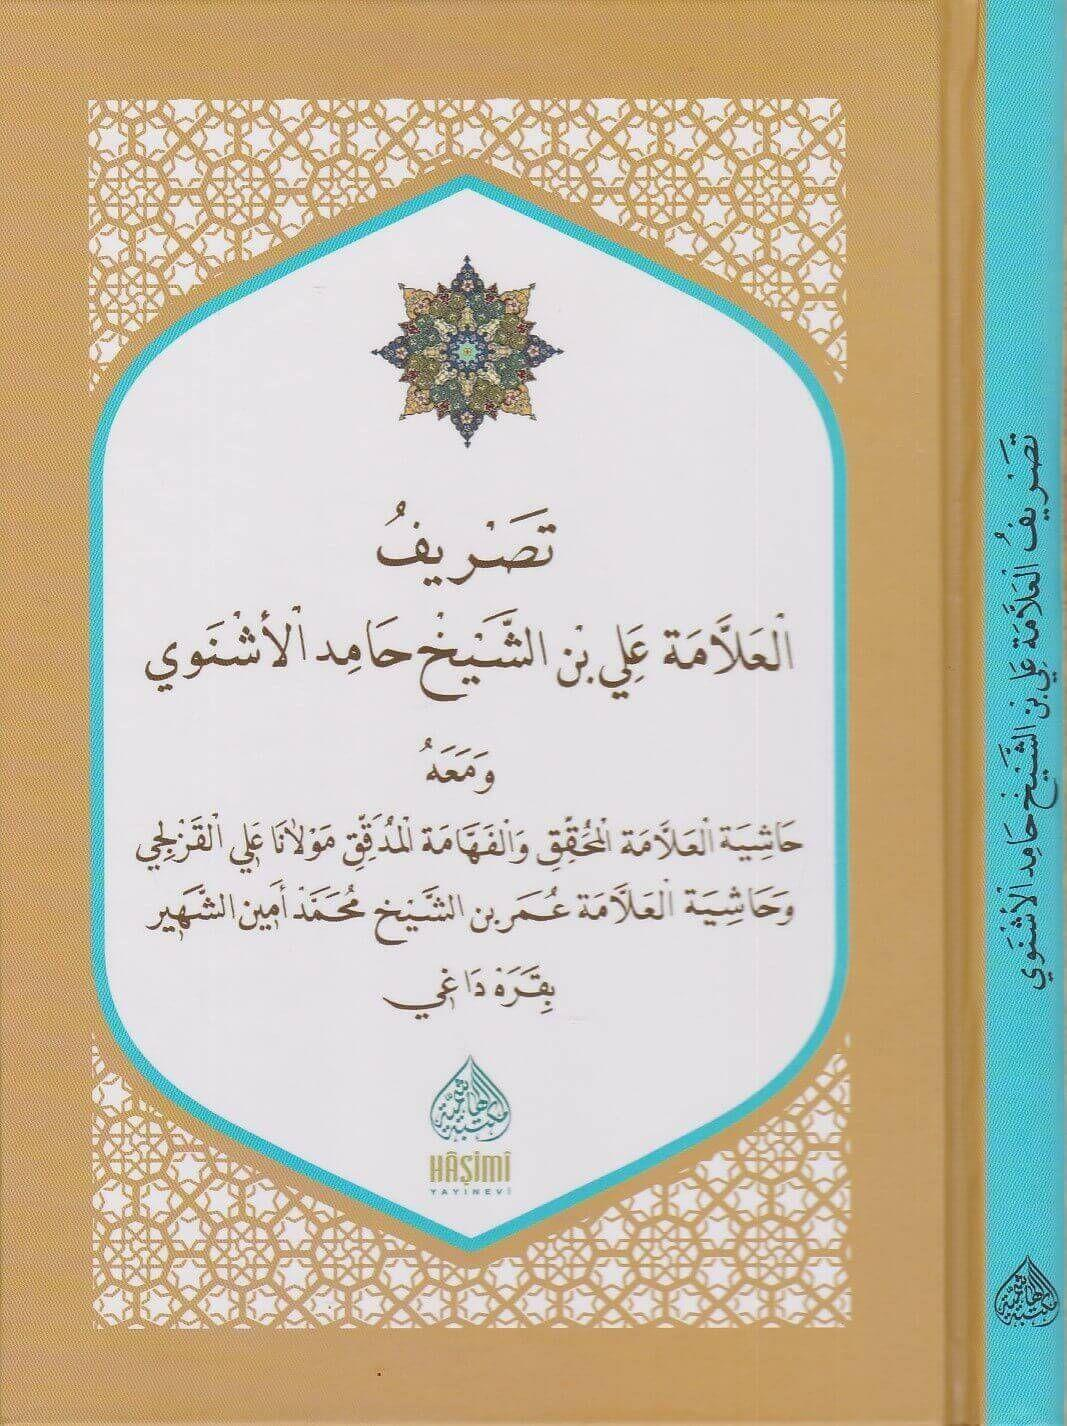 تَصْرِيفُ
الْعَلَّامَة عَلِي بْن الشَّيْخ حَامِد الْأُشْنَوِي
وَمَعَهُ
حَاشِيَة الْعَلَّامَة الْمُحَقِّقِ وَالْفَهَّامَة الْمُدَقِّقِ مَوْلَانَا عَلِي الْقَزْلِجِي
وَحَاشِيَة الْعَلَّامَة عُمَر بن الشَّيْخ مُحَمَّد أَمِين الشَّهِير
بِقَرَهْ دَاغِي
مكتبة الهاشمية
HÂŞİMİ
YAYINEVİ
تَصْرِيفُ الْعَلَّامَة عَلِي بْن الشَّيْخ حَامِد الْأُشْنَوِي
مكتبة الهاشمية